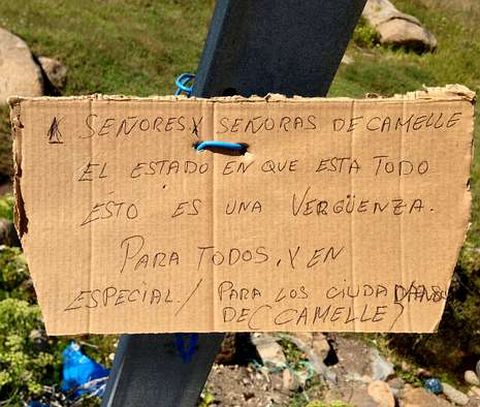 SEÑORES Y SEÑORAS DE CAMELLE
EL ESTADO EN QUE ESTA TODO
ESTO ES UNA VERGÜENZA.
PARA TODOS, Y EN
ESPECIAL/ PARA LOS CIUDADANOS
DE (CAMELLE)